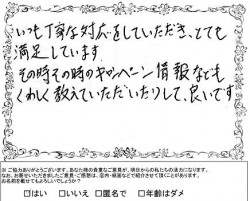 いつも丁寧な対応をしていただき、とても
満足しています。
その時その時のキャンペーン情報なども
くわしく教えていただいたりして、良いです
※ご協力ありがとうございます。あなた様の貴重なご意見が、明日からの私たちの活力になります。
なお、お寄せいただきましたご意見・ご感想は、店内・紙面などで紹介させて頂くことがあります。
お名前を載せてもよろしいでしょうか？
□はい □いいえ □匿名で □年齢はダメ